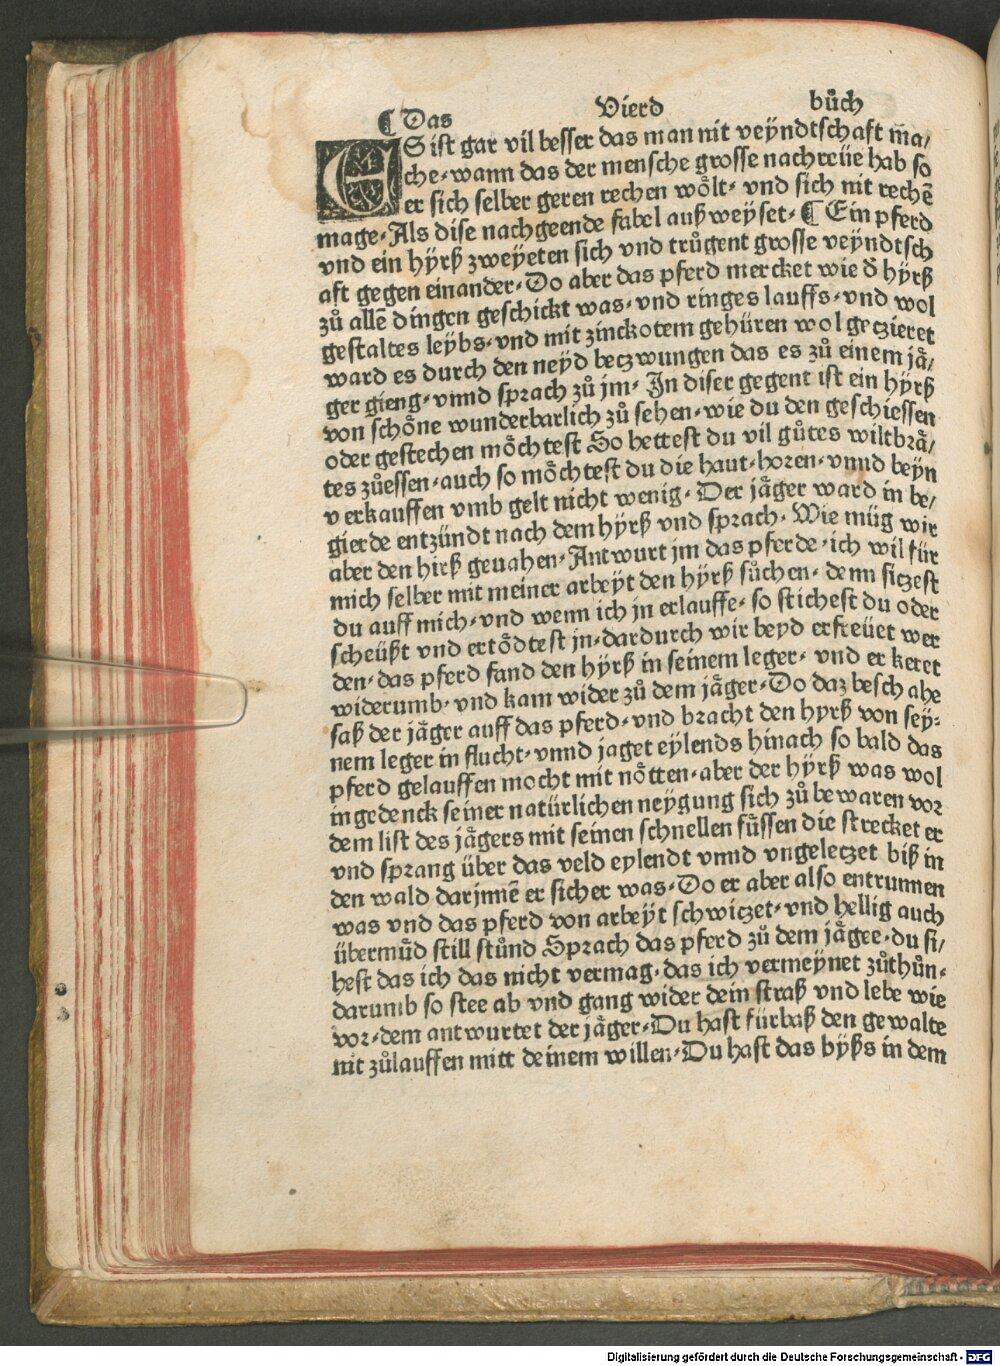 ¶ Das Vierd bůch
ES ist gar vil besser das man nit veÿndtschaft m̄a/
che·wann das der mensche grosse nachreüe hab so
er sich selber geren rechen woͤlt· vnd sich nit rechē
mage·Als dise nachgeende fabel auß weÿset· ¶ Ein pferd
vnd ein hÿrß zweÿeten sich vnd truͦgent grosse veÿndtsch
aft gegen einander·Do aber das pferd mercket wie d̄ hÿrß
zuͦ allē dingen geschickt was·vnd ringes lauffs·vnd wol
gestaltes leÿbs·vnd mit zinckotem gehüren wol geczieret
ward es durch den neÿd beczwungen das es zuͦ einem jaͤ/
ger gieng·vnnd sprach zuͦ jm· In diser gegent ist ein hÿrß
von schoͤne wunderbarlich zuͦ sehen·wie du den geschiessen
oder gestechen moͤchtest So hettest du vil guͦtes wiltbraͤ/
tes zuͦessen·auch so moͤchtest du die haut·horen·vnnd beÿn
verkauffen vmb gelt nicht wenig· Der jaͤger ward in be/
gierde entzündt nach dem hÿrß vnd sprach· Wie müg wir
aber den hirß geuahen·Antwurt jm das pferde·ich wil für
mich selber mit meiner arbeÿt den hÿrß suͦchen· denn siczest
du auff mich·vnd wenn ich jn erlauffe· so stichest du oder
scheüßt vnd ertoͤdtest jn·dardurch wir beyd erfreüet wer
den·das pferd fand den hÿrß in seinem leger· vnd er keret
widerumb·vnd kam wider zuͦ dem jaͤger·Do daz beschahe
saß der jaͤger auff das pferd·vnd bracht den hyrß von seÿ:
nem leger in flucht·vnnd jaget eÿlends hinach so bald das
pferd gelauffen mocht mit noͤtten·aber der hÿrß was wol
ingedenck seiner natürlichen neÿgung sich zuͦ bewaren vor
dem list des jaͤgers mit seinen schnellen fuͤssen die strecket er
vnd sprang über das veld eylendt vnnd vngeleczet biß in
den wald darjnnē er sicher was·Do er aber also entrunnen
was vnd das pferd von arbeÿt schwiczet·vnd hellig auch
übermuͤd still stuͦnd Sprach das pferd zuͦ dem jaͤgee·du si/
hest das ich das nicht vermag·das ich vermeÿnet zuͦthuͦn·
darumb so stee ab vnd gang wider dein straß vnd lebe wie
vor·dem antwurtet der jaͤger·Du hast fürbaß den gewalte
nit zuͦlauffen mitt deinem willen·Du hast das bÿßs in dem
Digitalisierung gefördert durch die Deutsche Forschungsgemeinschaft - DFG